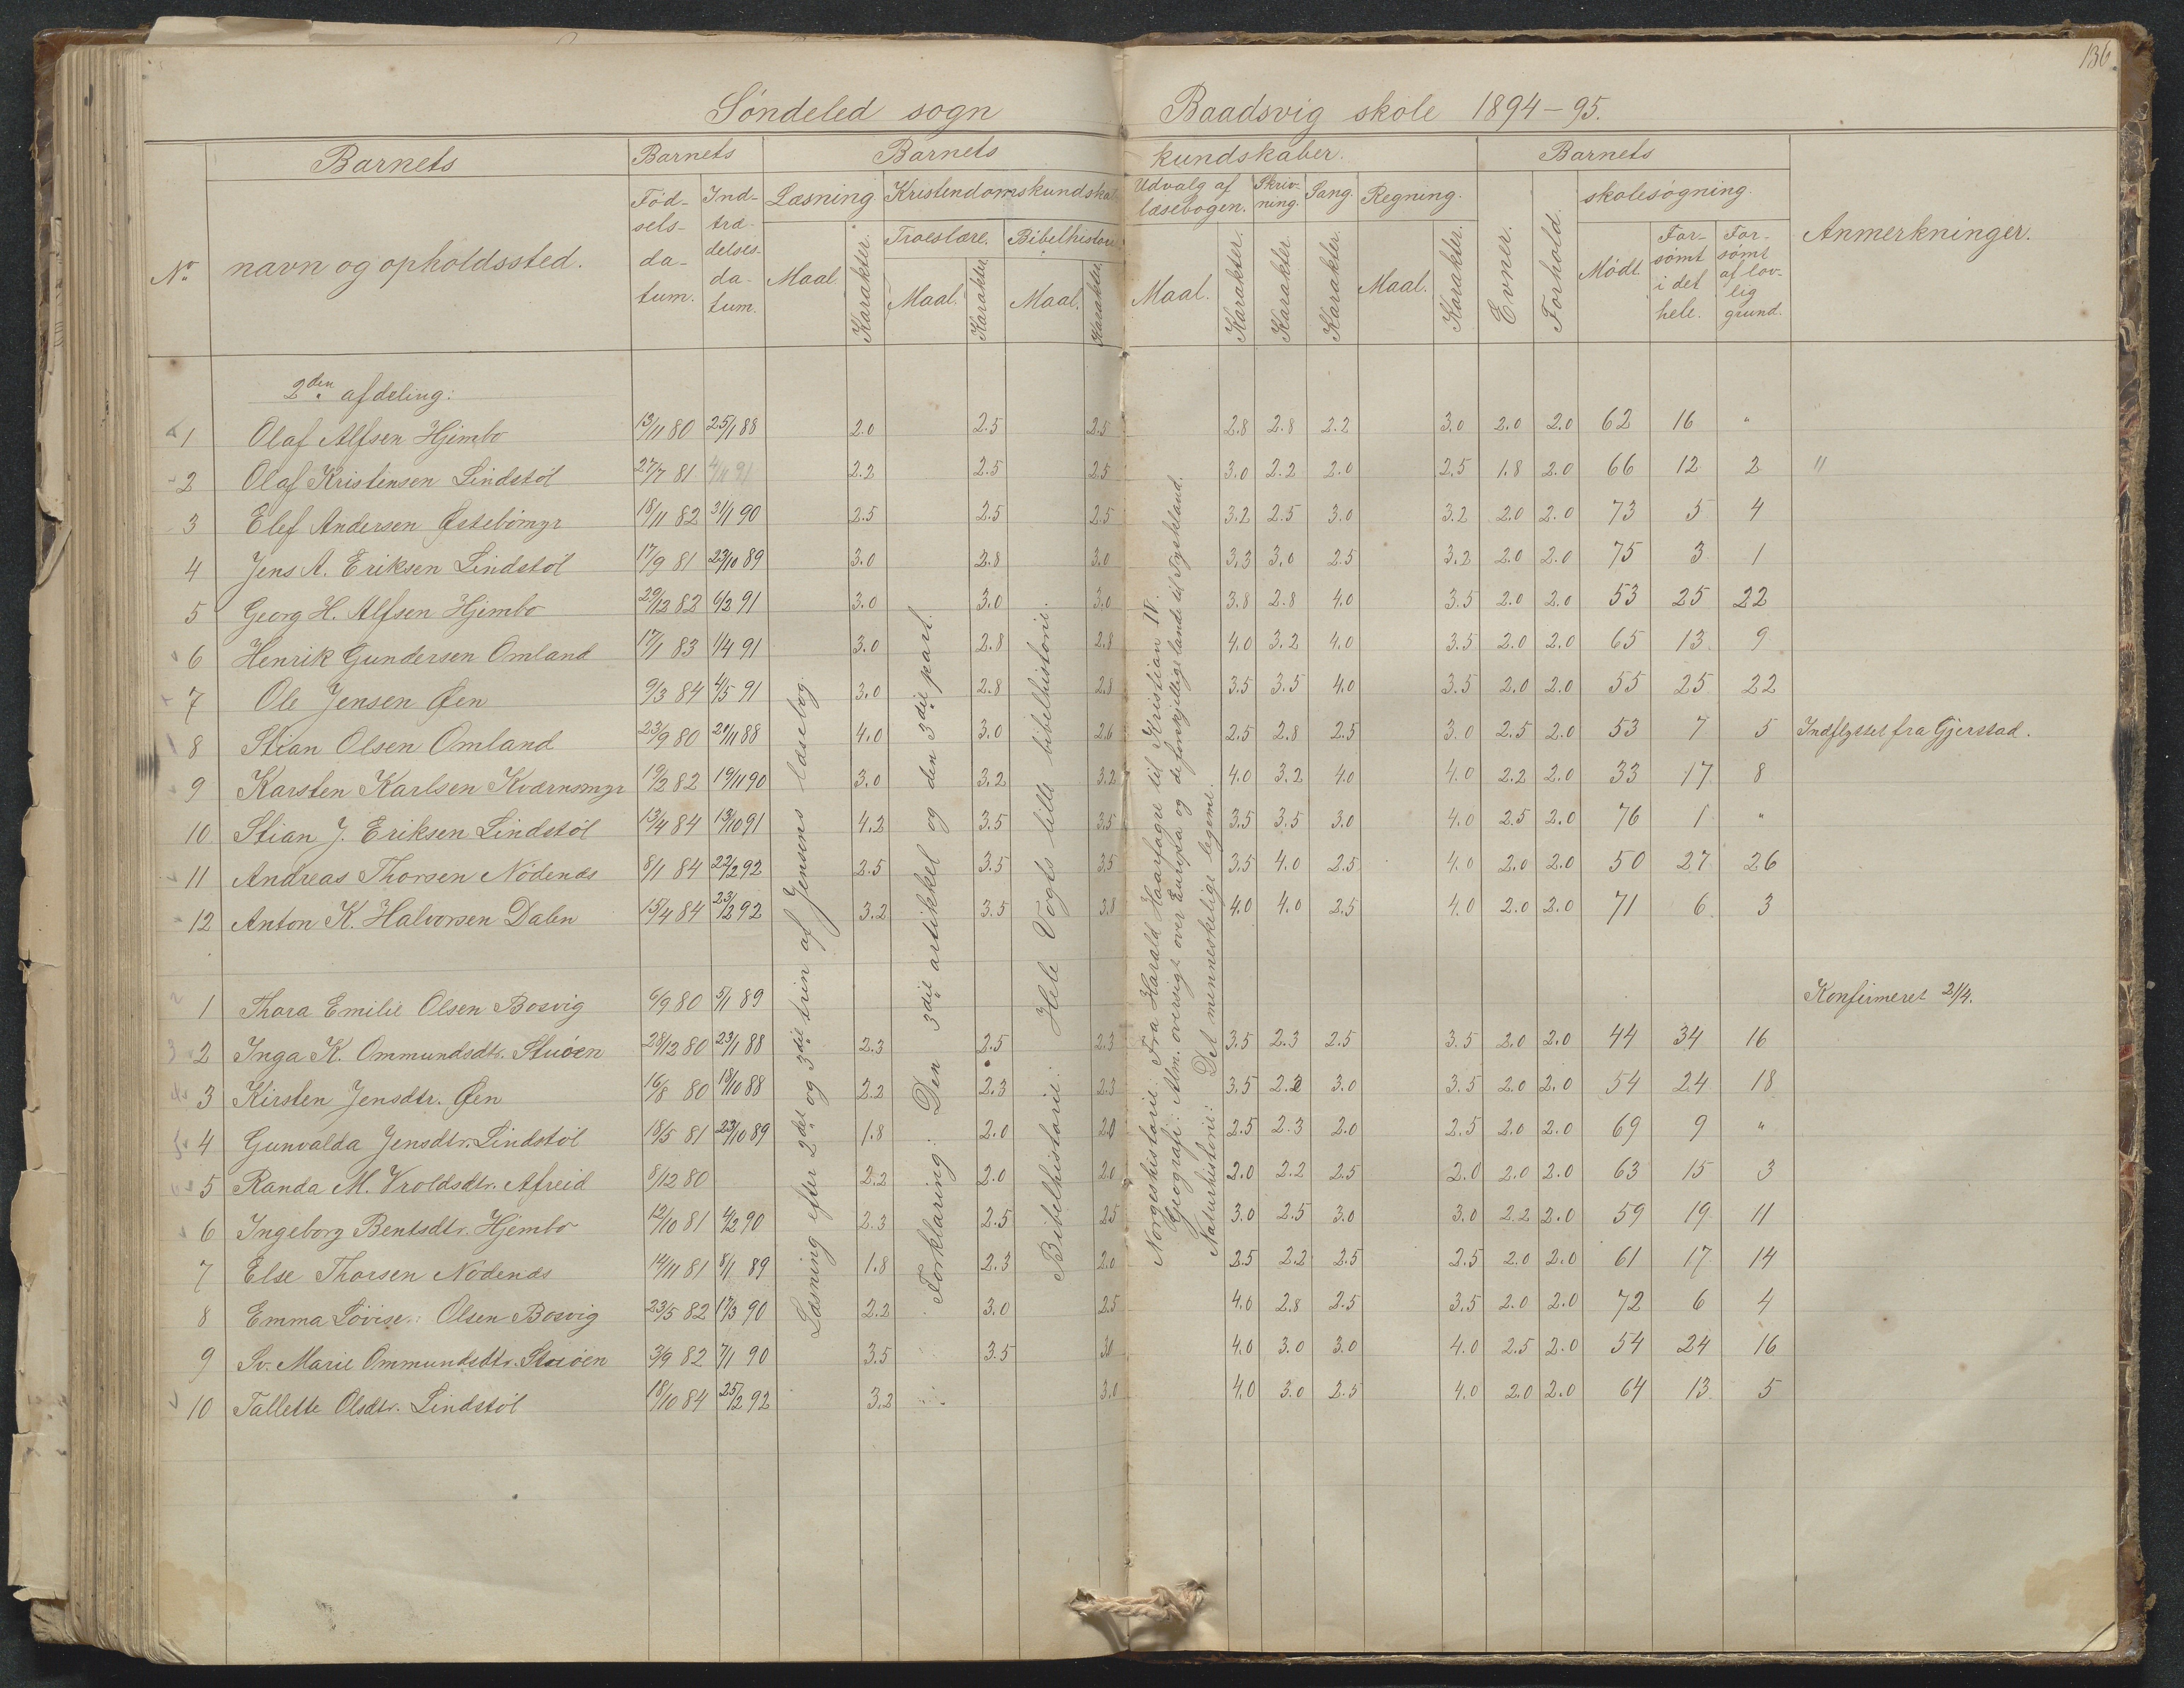 136
Søndeled sogn Baadsvig skole 1894-95.
No. Barnets navn og opholdssted. Barnets Fødselsdatum. Indtrædelsesdatum. Barnets kundskaber. Læsning Maal. Karakter. Kristendomskundskab Troeslære. Maal. Karakter. Bibelhistorie Maal. Karakter. Udvalg af læsebogen. Maal. Karakter. Skrivning. Karakter. Sang. Karakter. Regning. Maal. Karakter. Barnets Evner. Forhold. skolesøgning. Mødt. Forsømt i det hele. Forsømt af lovlig grund. Anmerkninger.
2den afdeling:
1 Olaf Alfsen Hjembo 13/11 80 25/1 88 2.0 2.5 2.5 2.8 2.8 2.2 3.0 2.0 2.0 62 16 "
2 Olaf Kristensen Lindstøl 27/7 81 4/11 91 2.2 2.5 2.5 3.0 2.2 2.0 2.5 1.8 2.0 66 12 2 "
3 Elef Andersen Østebømyr 18/11 82 31/1 90 2.5 2.5 2.5 3.2 2.5 3.0 3.2 2.0 2.0 73 5 4
4 Jens A. Eriksen Lindstøl 17/9 81 23/10 89 3.0 2.8 3.0 3.3 3.0 2.5 3.2 2.0 2.0 75 3 1
5 Georg H. Alfsen Hjembo 29/12 82 6/2 91 3.0 3.0 3.0 3.8 2.8 4.0 3.5 2.0 2.0 53 25 22
6 Henrik Gundersen Omland 17/1 83 1/4 91 3.0 2.8 2.8 4.0 3.2 4.0 3.5 2.0 2.0 65 13 9
7 Ole Jensen Øen 9/3 84 4/5 91 3.0 2.8 2.8 3.5 3.5 4.0 3.5 2.0 2.0 55 25 22
8 Stian Olsen Omland 23/9 80 20/11 88 4.0 3.0 2.6 2.5 2.8 2.5 3.0 2.5 2.0 53 7 5 Indflyttet fra Gjerstad.
9 Karsten Karlsen Kværnsmyr 19/2 82 19/11 90 3.0 3.2 3.2 4.0 3.2 4.0 4.0 2.2 2.0 33 17 8
10 Stian J. Eriksen Lindstøl 13/4 84 13/10 91 4.2 3.5 3.5 3.5 3.5 3.0 4.0 2.5 2.0 76 1 "
11 Andreas Thorsen Nødenes 8/1 84 22/2 92 2.5 3.5 3.5 3.5 4.0 2.5 4.0 2.0 2.0 50 27 26
12 Anton K. Halvorsen Dalen 15/4 84 23/2 92 3.2 3.5 3.8 4.0 4.0 2.5 4.0 2.0 2.0 71 6 3
1 Thora Emilie Olsen Bosvig 6/9 80 5/1 89 Konfirmeret 21/4.
2 Inga K. Ommundsdtr. Stuøen 28/12 80 23/1 88 2.3 2.5 2.3 3.5 2.3 2.5 3.5 2.0 2.0 44 34 16
3 Kirsten Jensdtr. Øen 16/8 80 18/10 88 2.2 2.3 2.3 3.5 3.0 3.5 2.0 2.0 54 24 18
4 Gunvalda Jensdtr. Lindstøl 18/5 81 23/10 89 1.8 2.0 2.0 2.5 2.3 2.0 2.5 2.0 2.0 69 9 "
5 Randa M. Vroldsdtr. Afreid 8/12 80 2.2 2.0 2.0 2.0 2.2 2.5 2.0 2.0 2.0 63 15 3
6 Ingeborg Bentsdtr. Hjembo 12/10 81 4/2 90 2.3 2.5 2.5 3.0 2.5 3.0 3.0 2.2 2.0 59 19 11
7 Else Thorsen Nødenes 14/11 81 8/1 89 1.8 2.3 2.0 2.5 2.2 2.5 2.5 2.0 2.0 61 17 14
8 Emma Lovise Olsen Bosvig 23/5 82 17/3 90 2.2 3.0 2.5 4.0 2.8 2.5 3.5 2.0 2.0 72 6 4
9 Sv. Marie Ommundsdtr. Stuøen 3/9 82 7/1 90 3.5 3.5 3.0 4.0 3.0 3.0 4.0 2.5 2.0 54 24 16
10 Tallette Olsdtr. Lindstøl 18/10 84 25/2 92 3.2 3.0 4.0 3.0 2.5 4.0 2.0 2.0 64 13 5
Læsning efter 2det og 3die trin af Jensens læsebog.
Forklaring: Den 3die artikkel og den 3die part.
Bibelhistorie: Hele Vogts lille bibelhistorie.
Norgeshistorie: Fra Harald Haarfagre til Kristian IV.
Geografi: Alm. oversigt over Europa og de forskjellige lande til Tyskland.
Naturhistorie: Det menneskelige legeme.